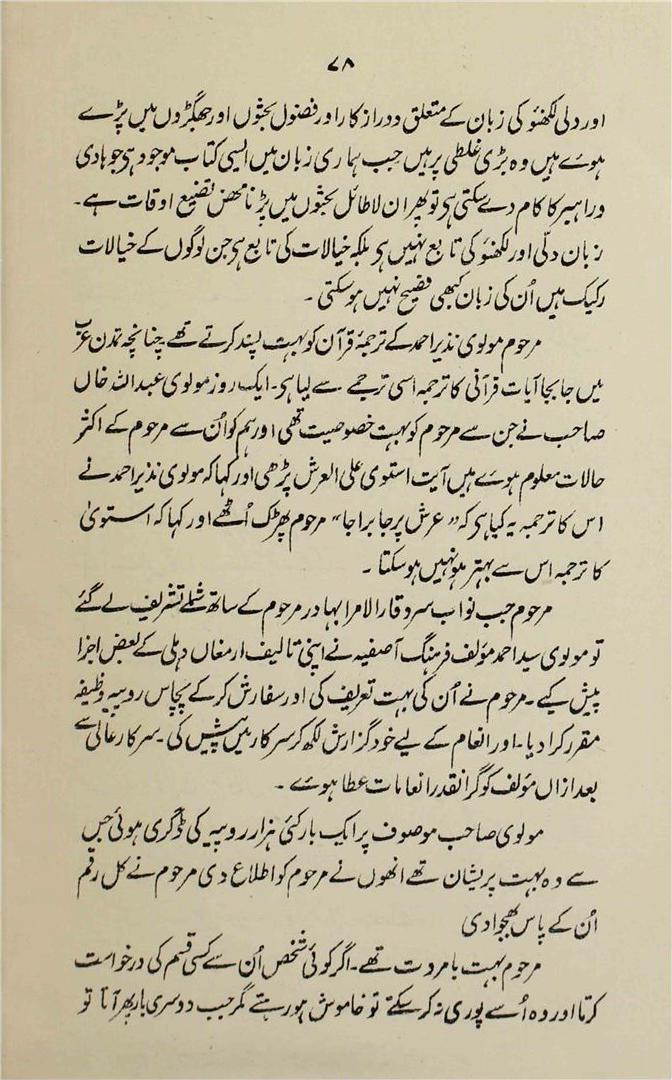 ۷۸
اور دلی لکھنؤ کی زبان کے متعلق دور از کار اور فضول بحثوں اور جھگڑوں میں پڑے
ہوے ہیں وہ بڑی غلطی پر ہیں جب ہماری زبان میں ایسی کتاب موجود ہی جو ہادی
وراہبر کا کام دے سکتی ہی تو پھر ان لاطائل بحثوں میں پڑنا محض تضیع اوقات ہے۔
زبان دلّی اور لکھنؤ کی تابع نہیں ہی بلکہ خیالات کی تابع ہی جن لوگوں کے خیالات
رکیک ہیں اُن کی زبان کبھی فصیح نہیں ہوسکتی ۔
مرحوم مولوی نذیر احمد کے ترجمۂ قرآن کو بہت پسند کرتے تھے چنانچہ تمدن عرب
میں جابجا آیات قرآنی کا ترجمہ اسی ترجمے سے لیا ہی۔ ایک روز مولوی عبداللہ خاں
صاحب نے جن سے مرحوم کو بہت خصوصیت تھی اور ہم کو اُن سے مرحوم کے اکثر
حالات معلوم ہوے ہیں آیت استوی علی العرش پڑھی اور کہا کہ مولوی نذیر احمد نے
اس کا ترجمہ یہ کیا ہی کہ "عرش پر جا براجا" مرحوم پھڑک اُٹھے اور کہا کہ استویٰ
کا ترجمہ اس سے بہتر ہو نہیں ہوسکتا ۔
مرحوم جب نواب سر وقار الامرا بہادر مرحوم کے ساتھ شملے تشریف لے گئے
تو مولوی سید احمد مؤلف فرہنگ آصفیہ نے اپنی تالیف ارمغاں دہلی کے بعض اجزا
پیش کیے۔ مرحوم نے اُن کی بہت تعریف کی اور سفارش کرکے پچاس روپیہ وظیفہ
مقرر کرا دیا۔ اور انعام کے لیے خود گزارش لکھ کر سرکار میں پیش کی۔ سرکار عالی سے
بعد ازاں مؤلف کو گرانقدر انعامات عطا ہوے ۔
مولوی صاحب موصوف پر ایک بار کئی ہزار روپیہ کی ڈگری ہوئی جس
سے وہ بہت پریشان تھے انھوں نے مرحوم کو اطلاع دی مرحوم نے کل رقم
اُن کے پاس بھجوا دی
مرحوم بہت بامروت تھے۔ اگر کوئی شخص اُن سے کسی قسم کی درخواست
کرتا اور وہ اُسے پوری نہ کرسکتے تو خاموش ہو رہتے مگر جب دوسری بار پھر آتا تو